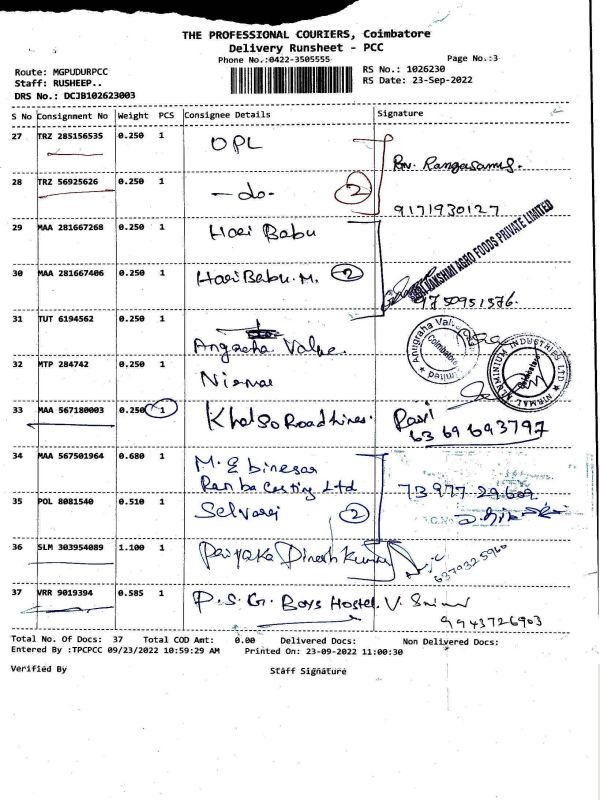 THE PROFESSIONAL COURIERS, Coimbatore
Delivery Runsheet - PCC
Phone No.:0422-3505555
Page No.:3
Route: MGPUDURPCC
RS No.: 1026230
Staff: RUSHEEP..
RS Date: 23-Sep-2022
DRS No.: DCJB102623003
S No Consignment No Weight PCS Consignee Details Signature
27 TRZ 285156535 0.250 1 OPL
Rangasamy.
28 TRZ 56925626 0.250 1 -do- 2
9171930127
29 MAA 281667268 0.250 1 Hari Babu
LAKSHMI AGRO FOODS PRIVATE LIMITED
30 MAA 281667406 0.250 1 Hari Babu. M. 2
9750951576.
31 TUT 6194562 0.250 1
Angraha Valve.
Anugraha Valve Coimbatore Limited
32 MTP 284742 0.250 1 Nirmal
NIRMAL ALUMINIUM INDUSTRIES LTD
33 MAA 567180003 0.250 1 Khalso Roadlines. Ravi
63 69 693797
34 MAA 567501964 0.680 1 M.
Ramba Casting Ltd
73 977 29609
35 POL 8081540 0.510 1 Selvaraj 2
36 SLM 303954089 1.100 1 Dinesh Kumar
37 VRR 9019394 0.585 1 P.S.G. Boys Hostel. V.
9943726903
Total No. Of Docs: 37 Total COD Amt: 0.00 Delivered Docs: Non Delivered Docs:
Entered By :TPCPCC 09/23/2022 10:59:29 AM Printed On: 23-09-2022 11:00:30
Verified By Staff Signature